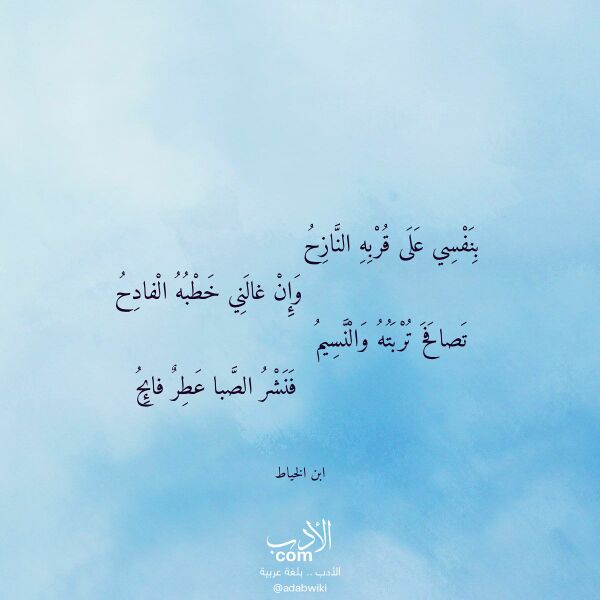 بِنَفْسِي عَلَى قُرْبِهِ النَّازِحُ
وَإِنْ غالَنِي خَطْبُهُ الْفادِحُ
تَصافَحَ تُرْبَتُهُ وَالنَّسِيمُ
فَنَشْرُ الصَّبا عَطِرٌ فائِحُ
ابن الخياط
الأدب
com
الأدب .. بلغة عربية
@adabwiki